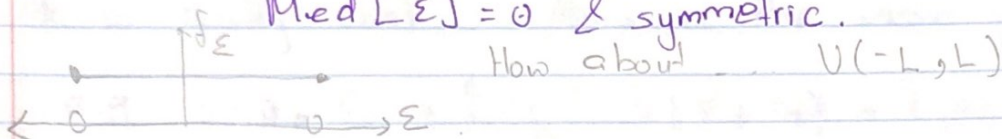 Med[Σ] = 0 & symmetric.
f_Σ
How about ... U(-L, L)
Σ